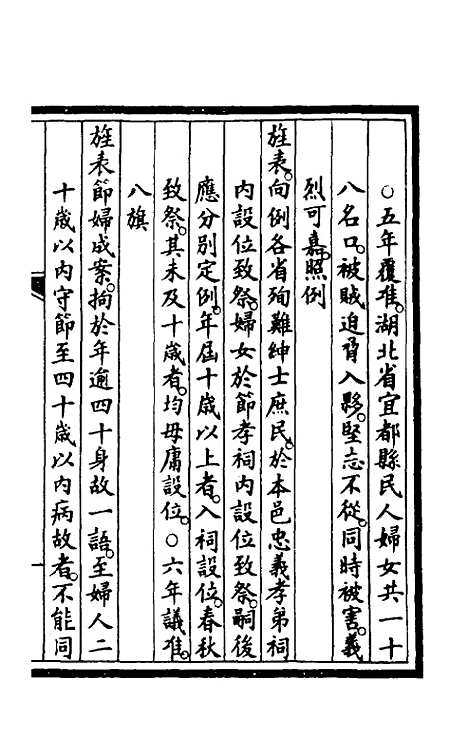 ○五年覆准。湖北省宜都縣民人婦女共一十
八名口。被賊迫脅入夥。堅志不從。同時被害。義
烈可嘉。照例
旌表。向例各省殉難紳士庶民。於本邑忠義孝弟祠
内設位致祭。婦女於節孝祠内設位致祭。嗣後
應分別定例。年屆十歲以上者。入祠設位。春秋
致祭。其未及十歲者。均毋庸設位。○六年議准。
八旗
旌表節婦成案。拘於年逾四十身故一語。至婦人二
十歲以内守節至四十歲以内病故者。不能同